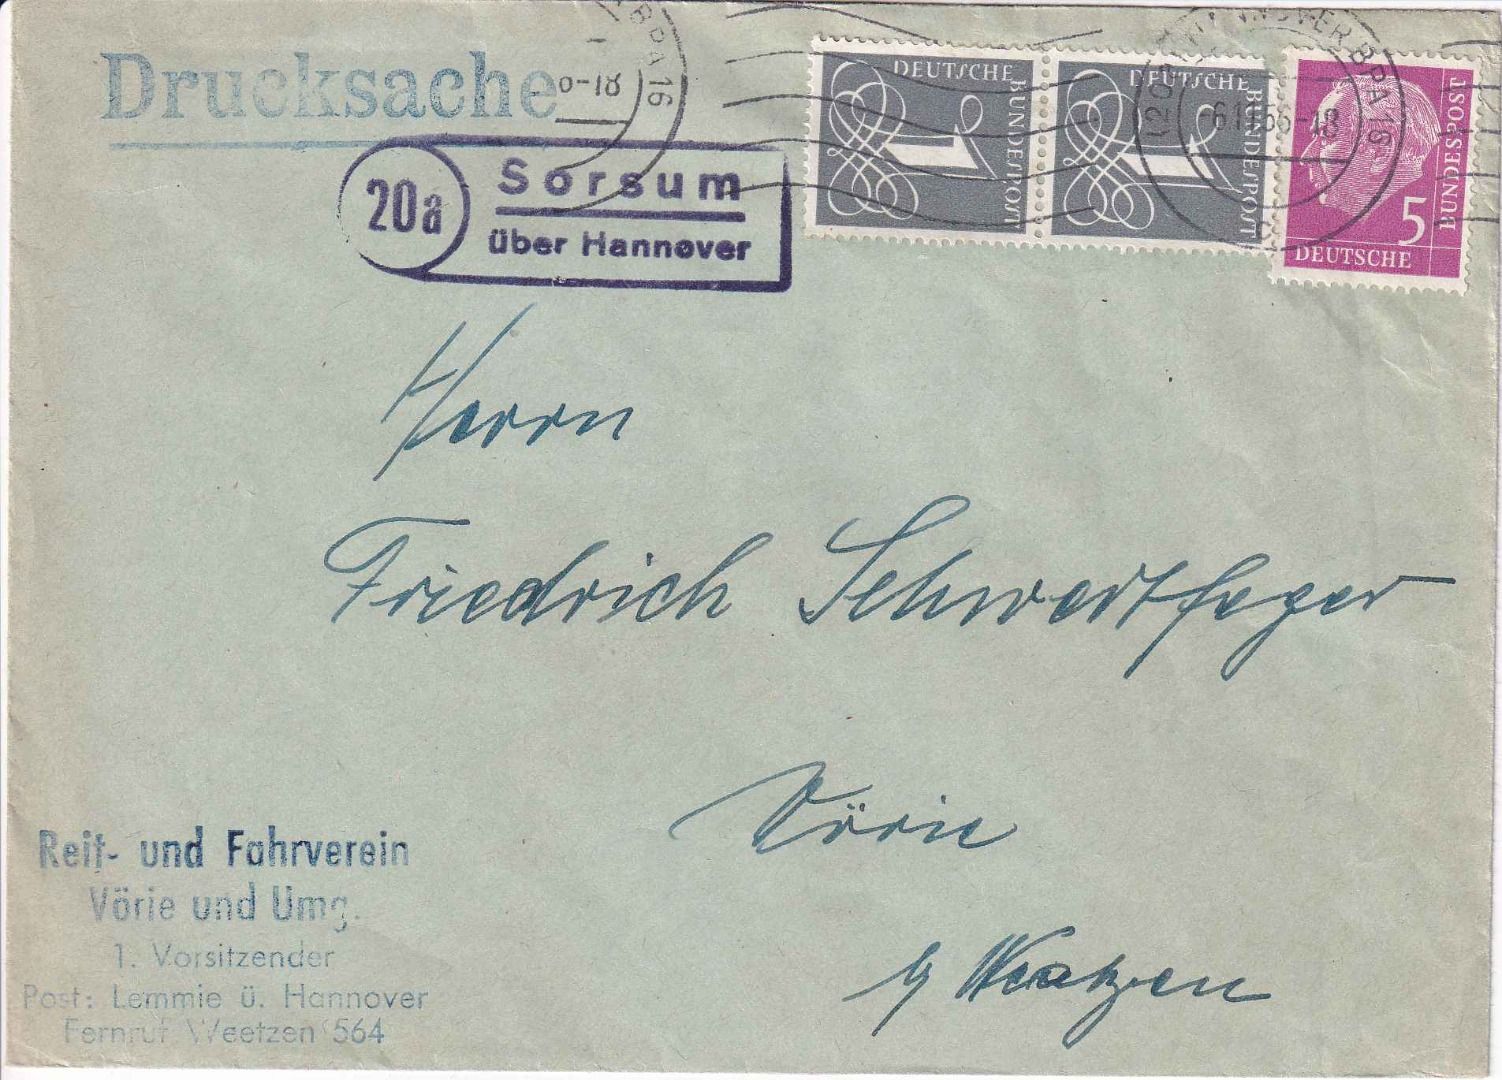 Drucksache
8-18
BPA 16
20a
Sorsum
über Hannover
DEUTSCHE
BUNDESPOST
1
DEUTSCHE
BUNDESPOST
1
HANNOVER BPA 16
-6.11.56-18
5
BUNDESPOST
DEUTSCHE
Herrn
Friedrich Schwertfeger
Vörie
Weetzen
Reit- und Fahrverein
Vörie und Umg.
1. Vorsitzender
Post: Lemmie ü. Hannover
Fernruf Weetzen 564